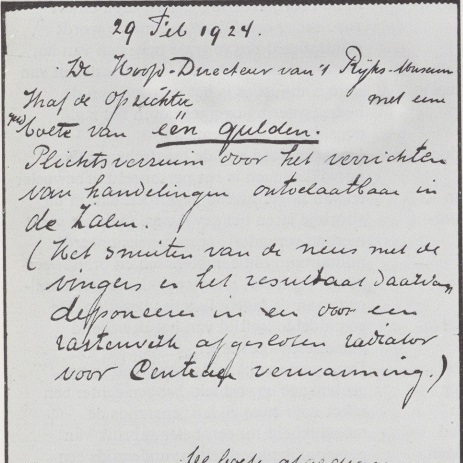 29 Feb 1924.
De Hoofd-Directeur van 't Rijks-Museum
straf de Opzichter met een
boete van één gulden.
Plichtsverzuim door het verrichten
van handelingen ontoelaatbaar in
de Zalen.
(Het snuiten van de neus met de
vingers en het resultaat daarvan
deponeren in en door een
rasterwerk afgesloten radiator
voor Centrale verwarming.)